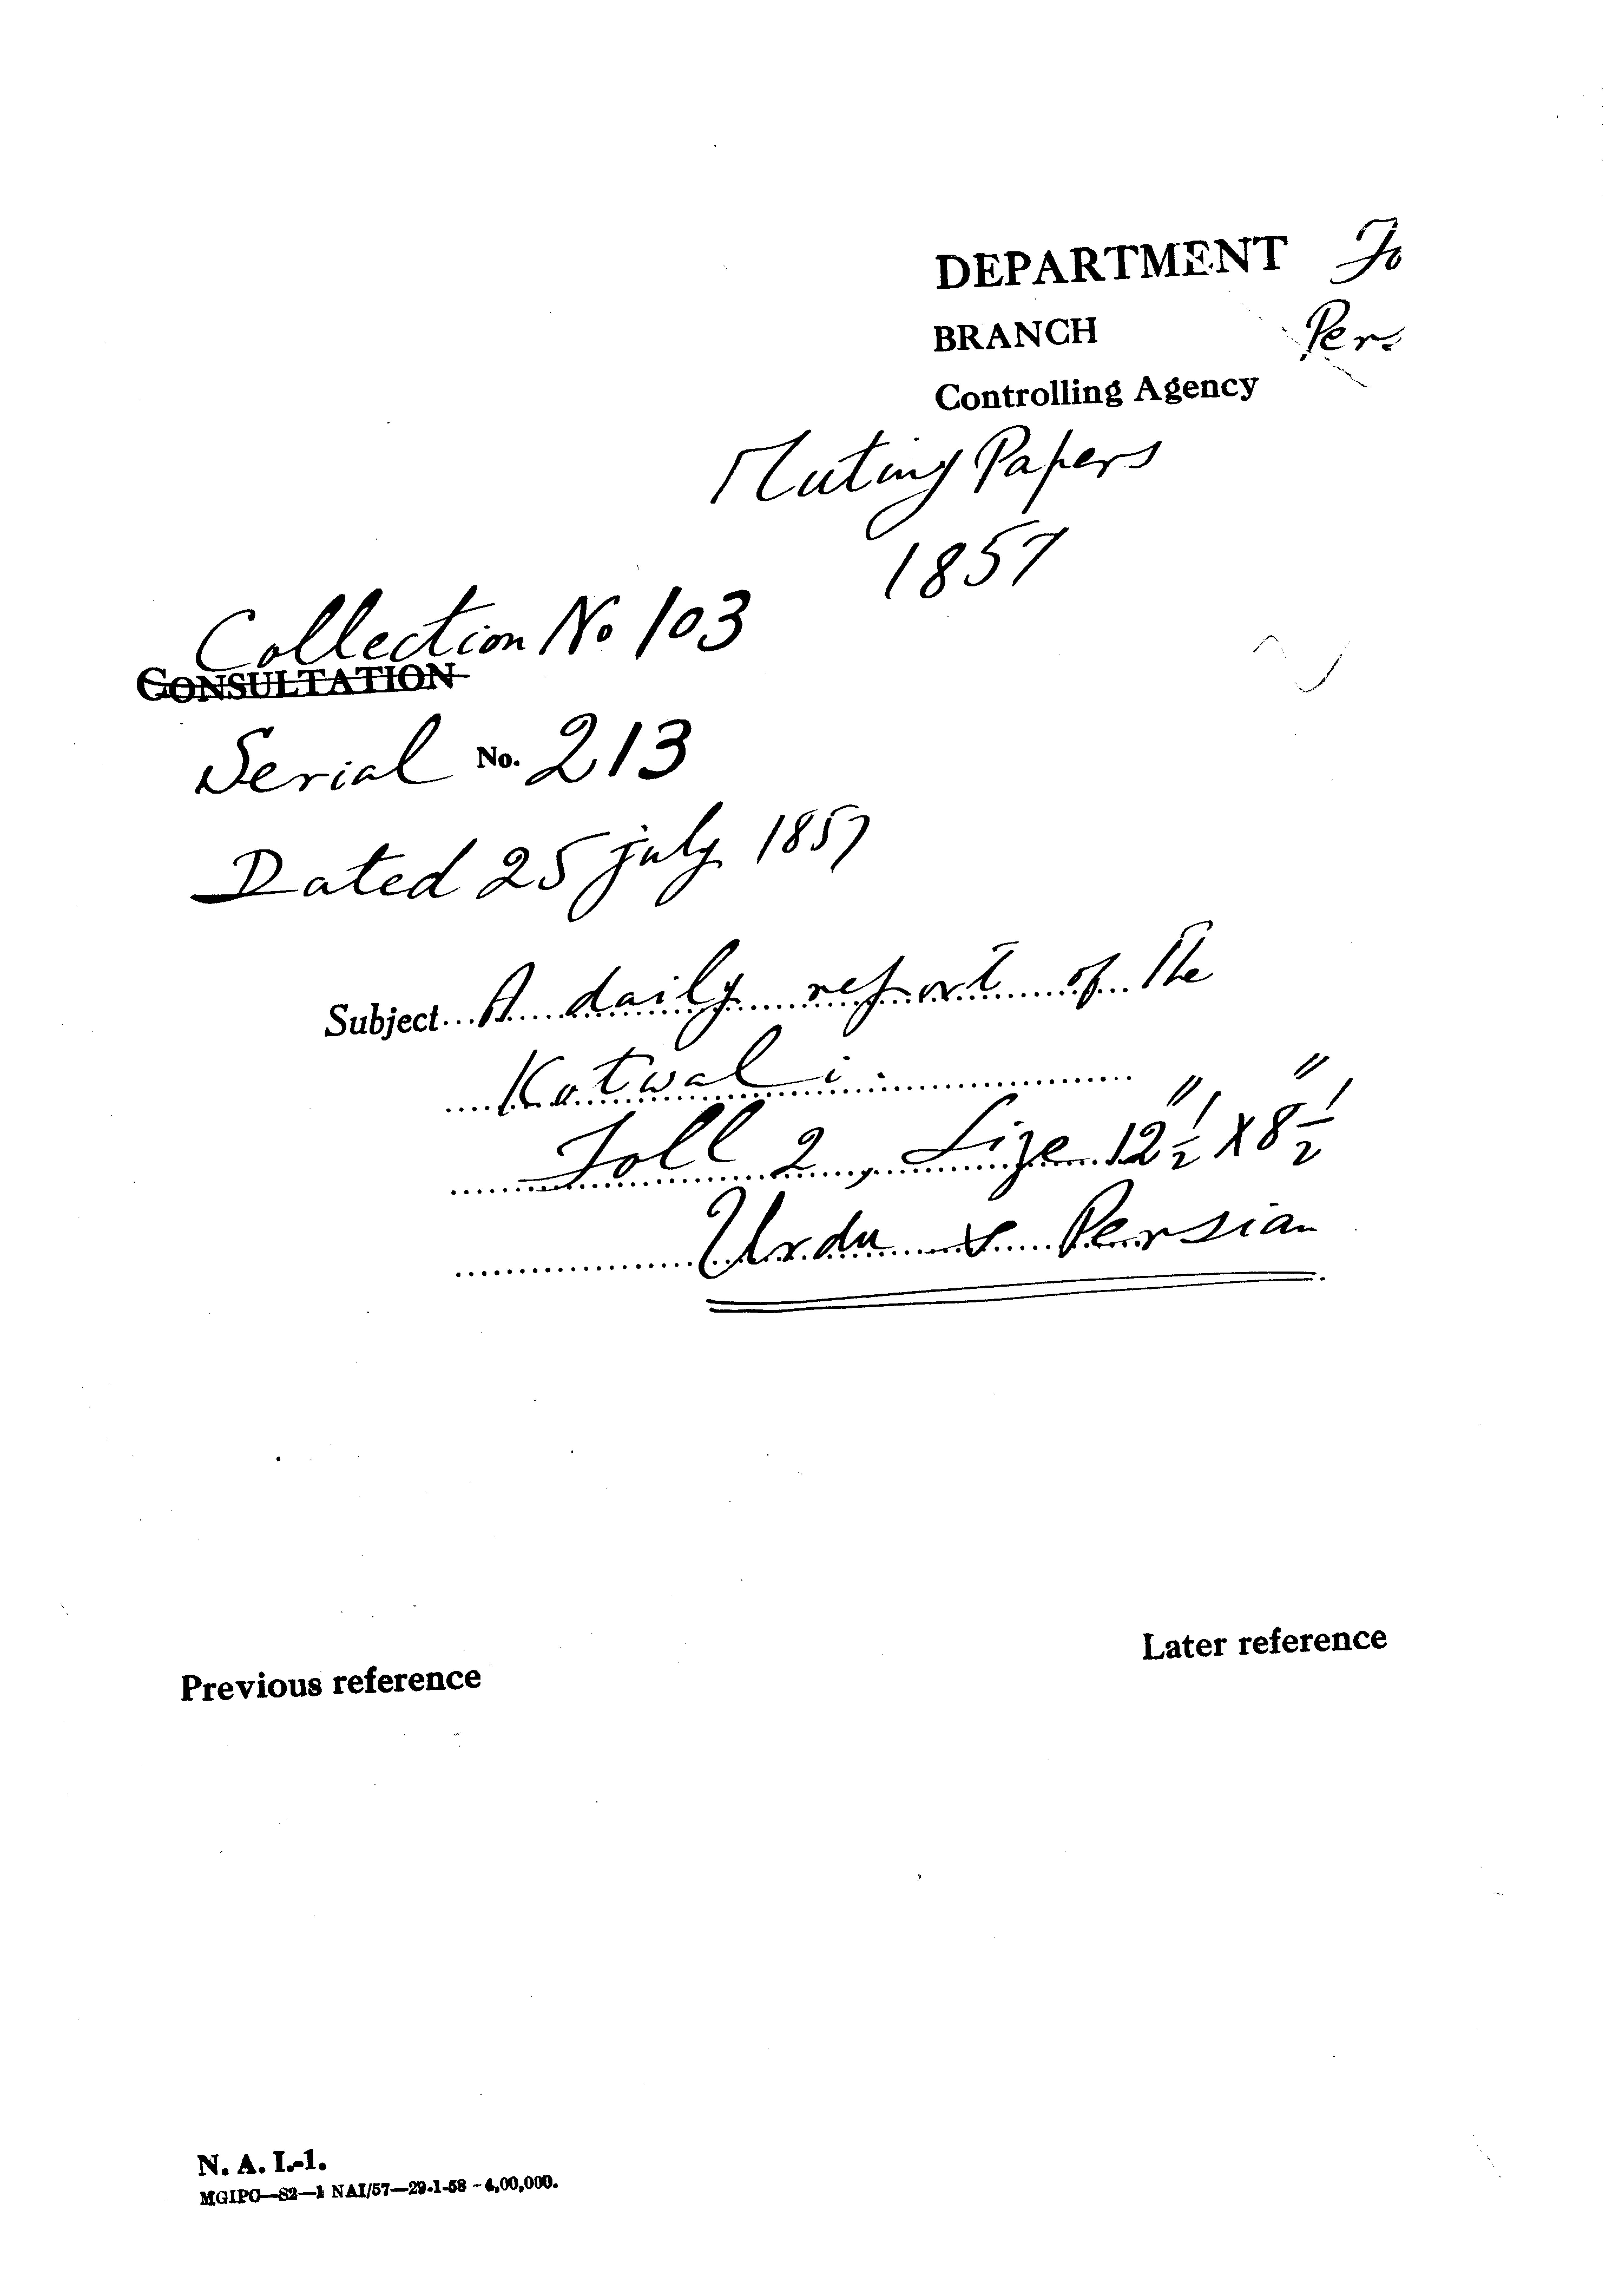 DEPARTMENT Fo
BRANCH Per
Controlling Agency
Mutiny Papers
1857
Collection No 103
CONSULTATION
Serial No. 213
Dated 25 july 1857
Subject... A daily report of the
Kotwali.
Foll 2, Size 12½" X 8½"
Urdu & Persian
Later reference
Previous reference
N. A. I.-1.
MGIPC—S2—1 NAI/57—29-1-58 - 4,00,000.